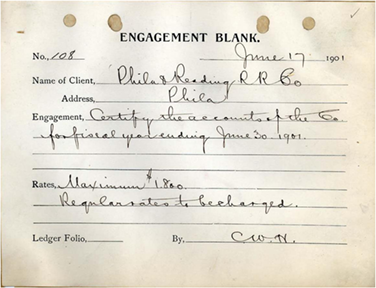 ENGAGEMENT BLANK.
No. 108 June 17 1901
Name of Client, Phila & Reading R R Co
Address, Phila
Engagement, Certify the accounts of the Co
for fiscal year ending June 30 1901.
Rates, Maximum $1.800
Regular rates to be charged.
Ledger Folio, By, C.W.H.